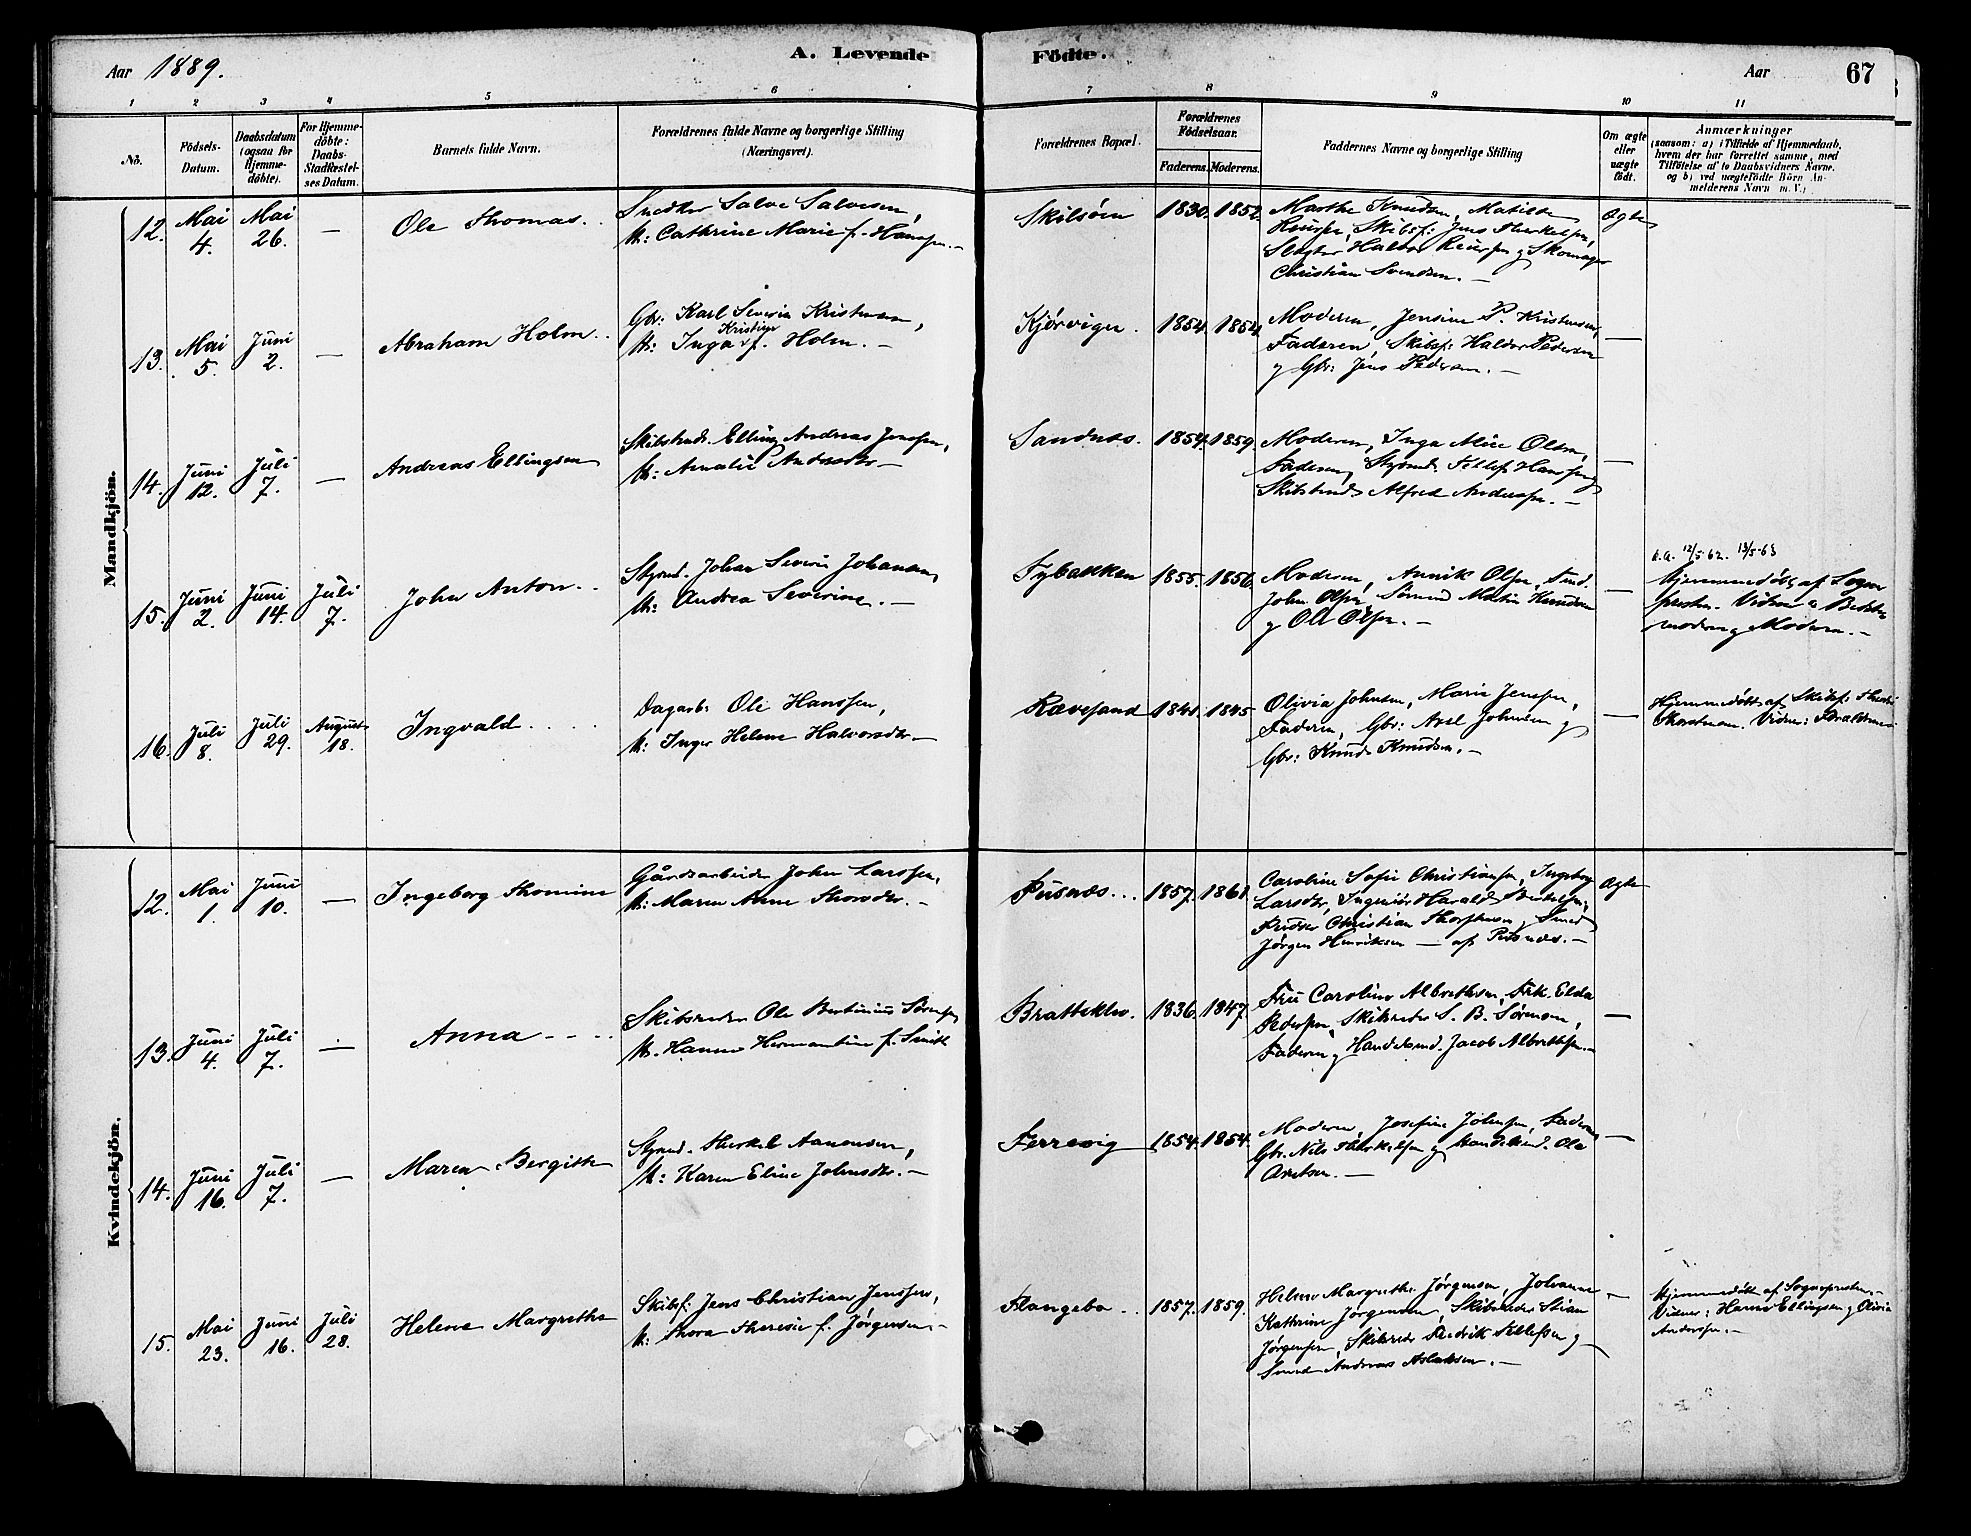 Aar 1889.
A. Levende
Födte.
Aar
67
1 2 3 4 5 6 7 8 9 10 11
No.
Födsels-
Datum.
Daabsdatum
(ogsaa for
Hjemme-
döbte).
For Hjemme-
döbte:
Daabs-
Stadfæstel-
ses Datum.
Barnets fulde Navn.
Forældrenes fulde Navne og borgerlige Stilling
(Næringsvei).
Forældrenes Bopæl.
Forældrenes
Födselsaar.
Faderens. Moderens.
Faddernes Navne og borgerlige Stilling
Om ægte
eller
uægte
født.
Anmærkninger
(saasom: a) i Tilfælde af Hjemmedaab,
hvem der har forrettet samme, med
Tilföielse af to Daabsvidners Navne.
og b) ved uægtefödte Börn An-
melderens Navn m. V.)
Mandkjön.
12. Mai 4. Mai 26. — Ole Thomas.
Snedker Salve Salvesen,
H: Cathrine Marie f. Hanssen. —
Skilsöen 1830. 1852.
Marthe Knudsen, Matilde
Skibsf: Jens Therkelsen,
Halvor Skomager
Christian Svendsen. —
Ægte
13. Mai 5. Juni 2. — Abraham Holm.
Gbr: Karl Severin Kristensen,
H: Inga Kristine f. Holm. —
Kjørvigen. 1854. 1854.
Moderen, Jensine P. Kristensen,
Faderen, Skibsf: Haldor Pedersen
og Gbr: Jens Pedersen. —
—
14. Juni 12. Juli 7. — Andreas Ellingsen
Skibstmd. Elling Andreas Jenssen,
H: Amalie Andersdtr —
Sandnæs. 1854. 1859.
Moderen, Inga Olsen,
Faderen, Styrmd. Tellef Hanssen og
Skibstmd Alfred Anderssen. —
—
15. Juni 2. Juni 14. Juli 7. John Anton.
Styrmd. Johan Severin Johansen,
H: Andrea Severine. —
Tybakken 1855. 1856.
Moderen, Annik Olsen, Tmd.
John Olsen, Sømand Martin Knudsen
og Ole Olsen. —
—
12/5-62. 13/5-63
Hjemmedøbt af Sogne-
presten. Vidner: Bedste-
moderen og Moderen. —
16. Juli 8. Juli 29. August 18. Ingvald
Dagarb: Ole Hanssen,
H: Inger Helene Halvorsdtr —
Rævesand 1841. 1845.
Olivia Johnsen, Marie Jenssen,
Faderen, Gbr: Axel Johnsen og
Gbr: Knud Knudsen. —
—
Hjemmedøbt af Skibsf:
Vidner: Forældrene
Kvindekjön.
12. Mai 1. Juni 10. — Ingeborg Thomine
Gårdsarbeider John Larssen,
H: Maren Anne Thorsdtr. —
Pusnæs. 1857. 1861.
Caroline Sofie Christiansen, Ingeborg
Larsdtr, Ingeniør Harald
Christian Smed
Jørgen Henriksen — af Pusnæs. —
Ægte
13. Juni 4. Juli 7. — Anna
Skibsreder Ole Bertinius Sørensen
H. Hanne Hermandine f. Smith
Brattekler. 1836. 1847.
Fru Caroline Albrethsen, Frk. Elda
Pederssen, Skibsreder S. B. Sørensen,
Faderen og Handelsmd. Jacob Albrethsen. —
—
14. Juni 16. Juli 7. — Maren Bergithe
Styrmd. Therkel Aanonsen,
H: Karen Eline Johnsdtr. —
Færevig 1854. 1854.
Moderen, Josefine Johnsen, Faderen
Gbr. Nils Therkelsen og Handelsmd. Ole
—
15. Mai 23. Juni 16. Juli 28. Helene Margrethe
Skibsf: Jens Christian Jenssen,
H: Thora Theresie f. Jørgensen. —
Flangebo 1857. 1859.
Helene Margrethe Jørgensen, Johanne
Kathrine Jørgensen, Skibsreder Stian
Jørgensen, Skibsreder Fredrik Tellefsen og
Smed Andreas Aslaksen. —
—
Hjemmedøbt af Sognepresten. —
Vidner: Hanne Ellingsen og Olivia
Anderssen. —